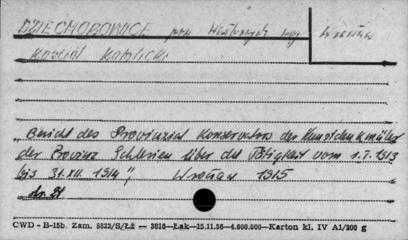 DZIECHOROWICE pow. Wołowiec woj. Wrocław
Kościół Katolicki
„Bericht des Provinzial Konservators der Kunstdenkmäler
der Provinz Schlesien über die Tätigkeit vom 1.7.1913
bis 31.XII.1914", Wrocław 1915
CWD - B-15b. Zam. 5823/S/ŁŻ — 3016—Łak—15.11.56—4.600.000—Karton kl. IV A1/200 g